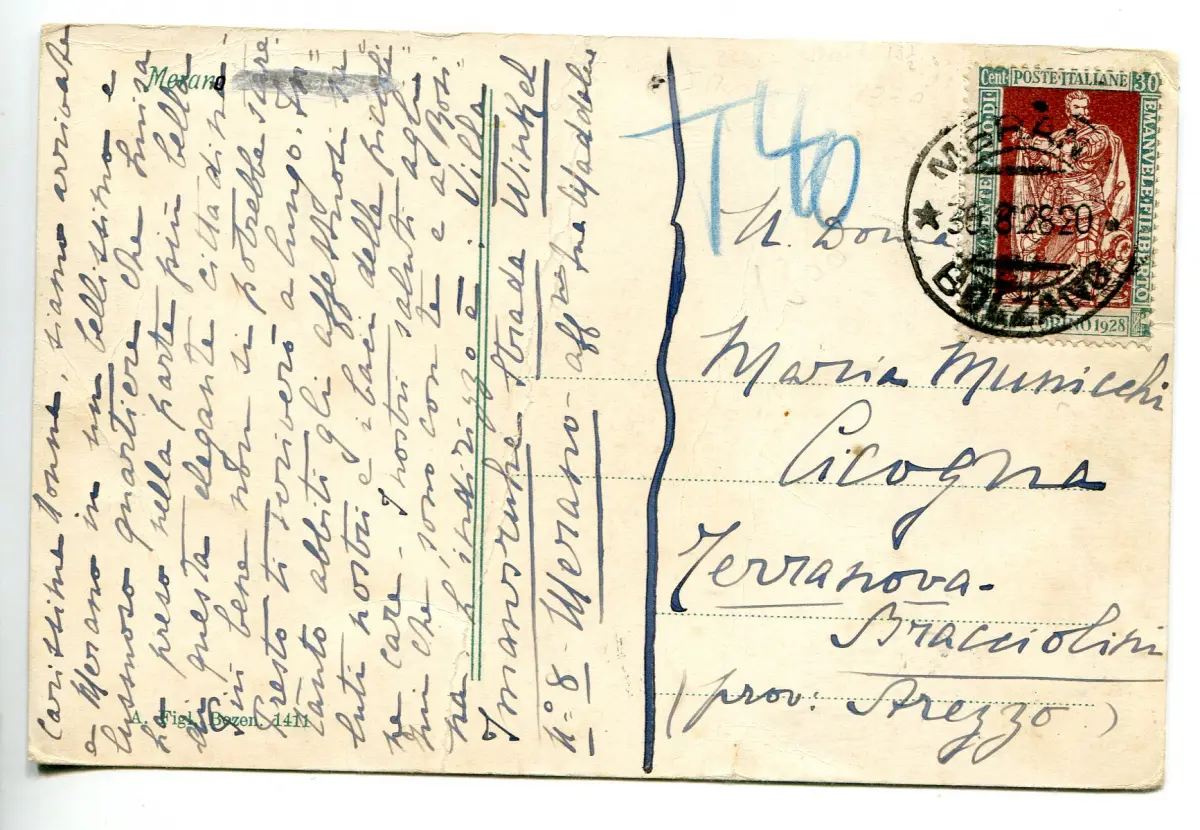 Merano
Carissime Donne, siamo arrivate
a Merano in un bellissimo e
lussuoso quartiere che Luisa
ha preso nella parte più bella
di questa elegante città di ne.
Più bene non si potrebbe stare.
Presto ti scriverò a lungo.
tanto abbiti gli affettuosi sa=
luti nostri e i baci delle piccole
care - I nostri saluti agli
che sono con te e a
L'indirizzo è: Villa
Strada Winkel
n.° 8 - Merano - aff
A. Figl, Bozen. 1411
T 40
Cent POSTE ITALIANE 30
EMANVELE FILIBERTO
TORINO 1928
MERANO
30.8.28.20
BOLZANO
N. Donna
Maria Municchi
Cicogna
Terranova-
Bracciolini
(prov. Arezzo)